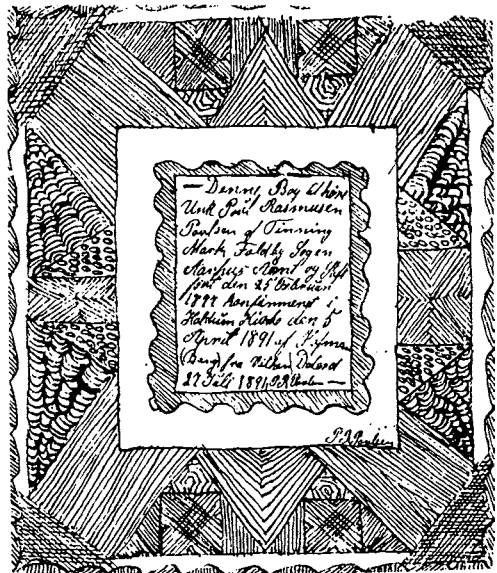 — Denne Bog tilhører
Unk Poul Rasmusen
Poulsen af Tinning
Mark Foldby Sogen
Aarhus Aamt og
føút den 25 Februari
1877 Konfirmeret i
Haldum Kirke den 5
April 1891 af
Berg fra Vilken
27 Júli 1891 P.R. Poulsen —
P.R. Poulsen